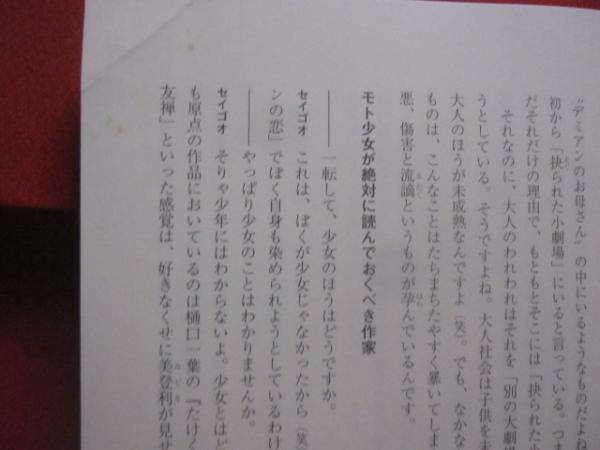 "デミアンのお母さん"の中にいるようなものだよね
初から「抉られた小劇場」にいると言っている。つま
だそれだけの理由で、もともとそこには「抉られた小
それなのに、大人のわれわれはそれを「別の大劇場
うとしている。そうですよね。大人社会は子供を未
大人のほうが未成熟なんですよ(笑)。でも、なかな
ものは、こんなことはたちまちたやすく暴いてしま
悪、傷害と流謫というものが孕んでいるんです。
モト少女が絶対に読んでおくべき作家
——一転して、少女のほうはどうですか。
セイゴオ これは、ぼくが少女じゃなかったから(笑
ンの恋」でぼく自身も染められようとしているわけ
——やっぱり少女のことはわかりませんか。
セイゴオ そりゃ少年にはわからないよ。少女とはど
も原点の作品においているのは樋口一葉の『たけく
友禅」といった感覚は、好きなくせに美登利が見せ